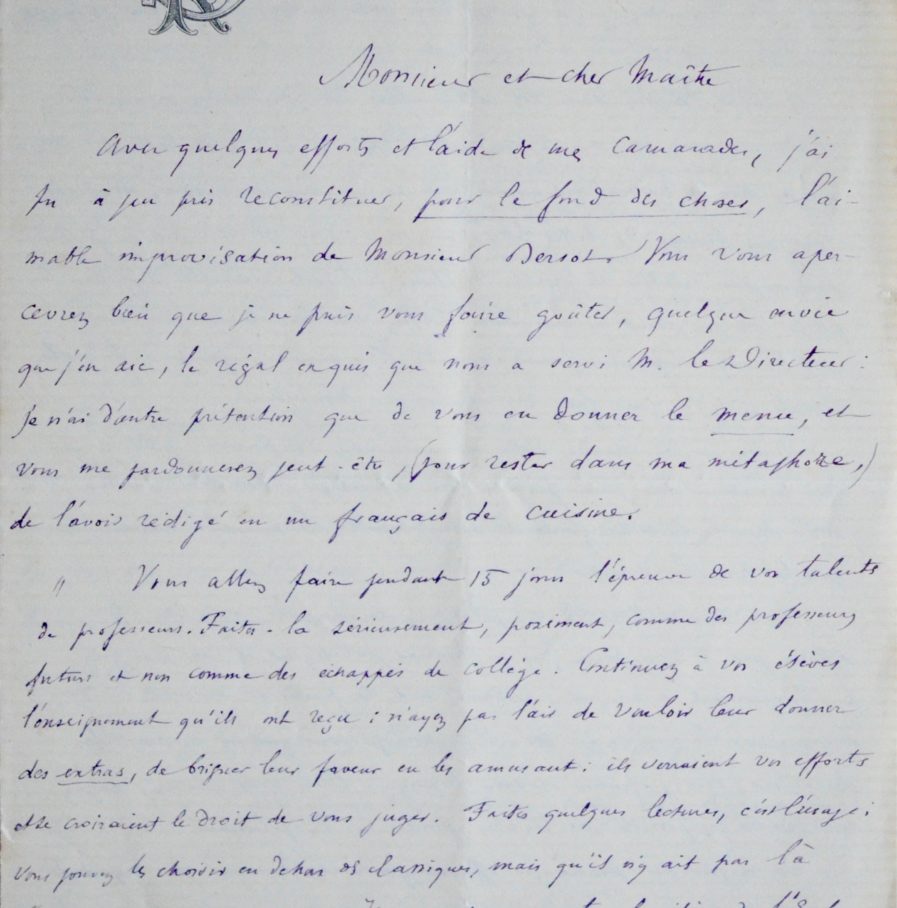 Monsieur et cher Maître
Avec quelques efforts et l'aide de mes camarades, j'ai
pu à peu près reconstituer, pour le fond des choses, l'ai-
mable improvisation de Monsieur Bersot. Vous vous aper-
cevrez bien que je ne puis vous faire goûter, quelque envie
que j'en aie, le régal exquis que nous a servi M. le Directeur :
je n'ai d'autre prétention que de vous en donner le menu, et
vous me pardonnerez peut-être, (pour rester dans ma métaphore,)
de l'avoir rédigé en un français de cuisine.
" Vous allez faire pendant 15 jours l'épreuve de vos talents
de professeurs. Faites-la sérieusement, posément, comme des professeurs
futurs et non comme des échappés de collège. Continuez à vos élèves
l'enseignement qu'ils ont reçu : n'ayez pas l'air de vouloir leur donner
des extras, de briguer leur faveur en les amusant : ils verraient vos efforts
et se croiraient le droit de vous juger. Faites quelques lectures, c'est l'usage ;
vous pouvez les choisir en dehors des classiques, mais qu'il n'y ait pas là